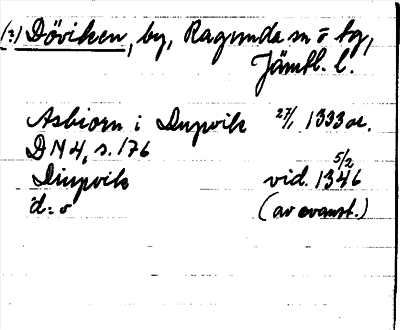 (?) Döviken, by, Ragunda sn o tg,
Jämtl. l.
Asbiorn i Diupvik 27/1 1333 or.
DN 4, s. 176
Diupvik vid. 5/2 1346
d:o (av evanst.)